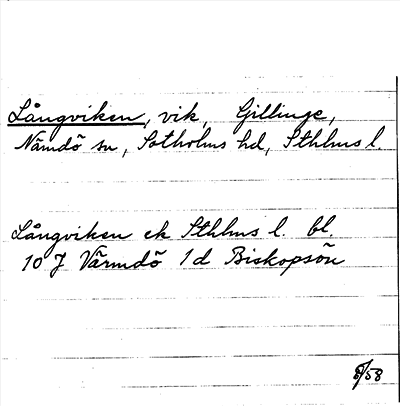 Långviken, vik, Gillinge,
Nämdö sn, Sotholms hd, Sthlms l.
Långviken ek Sthlms l. bl.
10 J Värmdö 1d Biskopsön
8/58